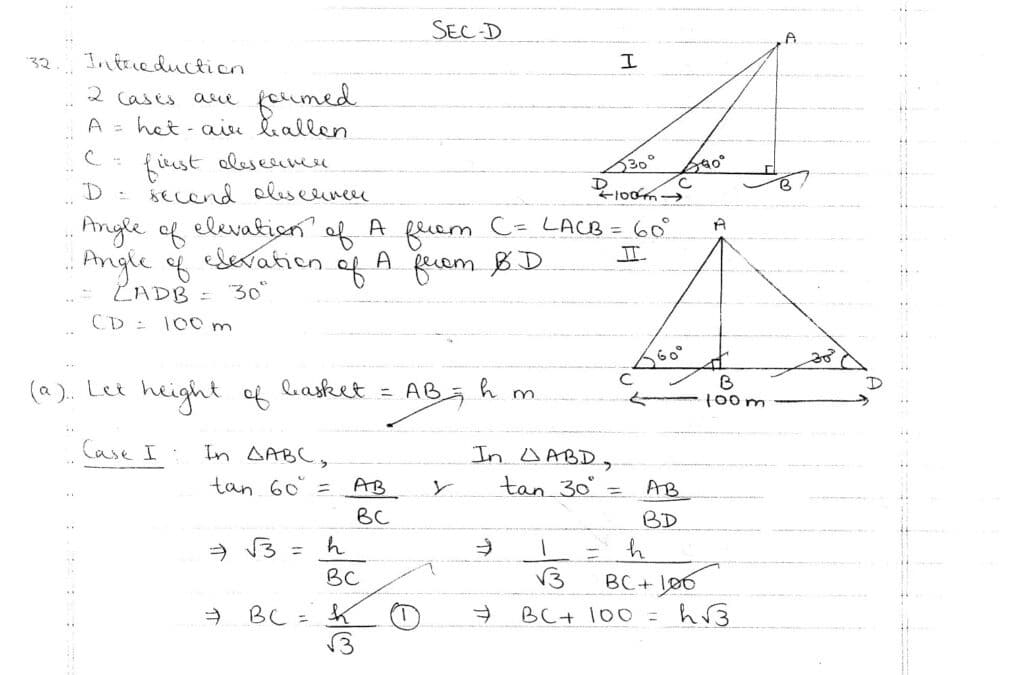 SEC-D
32. Introduction
2 cases are formed
A = hot-air ballon
C = first observer
D = second observer
Angle of elevation of A from C = ∠ACB = 60°
Angle of elevation of A from D
= ∠ADB = 30°
CD = 100 m
I
A
30°
60°
D
C
B
100m
II
A
60°
30°
C
B
D
100 m
(a) Let height of basket = AB = h m
Case I : In △ABC,
In △ABD,
tan 60° = AB
BC
&
tan 30° = AB
BD
⇒ √3 = h
BC
⇒ 1 = h
√3 BC + 100
⇒ BC = h ①
√3
⇒ BC + 100 = h√3